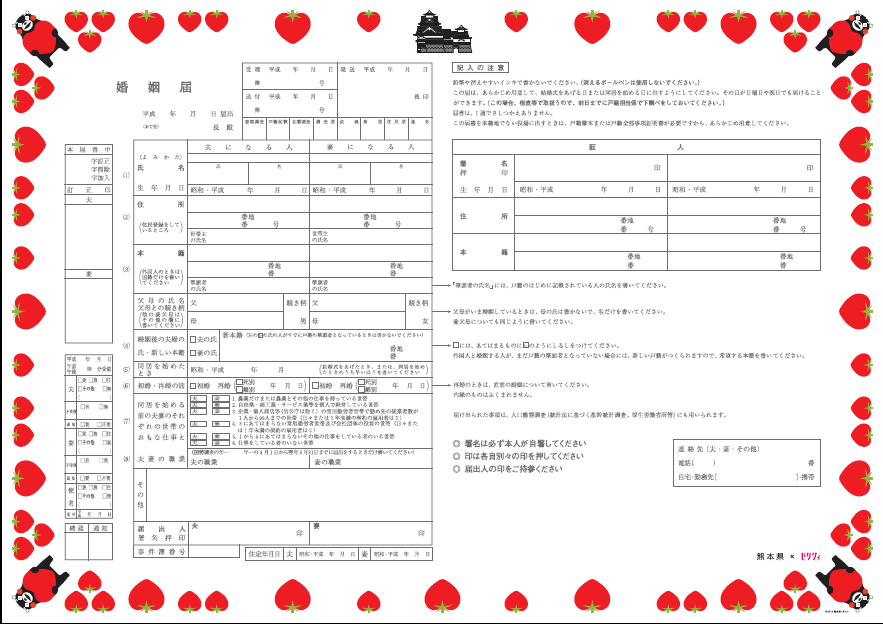 婚姻届
平成　年　月　日 届出
(あて先)
長 殿
受理 平成　年　月　日
第　号
送付 平成　年　月　日
第　号
発送 平成　年　月　日
長印
書類調査 戸籍記載 記載調査 調査票 附票 住民票 通知
本届書中
字訂正
字削除
字加入
訂正印
夫
妻
(1)
(よみかた)
氏名
生年月日
夫になる人
妻になる人
氏　名
氏　名
昭和・平成　年　月　日
昭和・平成　年　月　日
(2)
住所
(住民登録をしているところ)
番地
番　号
番地
番　号
世帯主の氏名
世帯主の氏名
(3)
本籍
(外国人のときは国籍だけを書いてください)
番地
番
番地
番
筆頭者の氏名
筆頭者の氏名
父母の氏名
父母との続き柄
(他の養父母はその他の欄に書いてください)
父
母
続き柄
男
父
母
続き柄
女
(4)
婚姻後の夫婦の氏・新しい本籍
□夫の氏
□妻の氏
新本籍
番地
番
(5)
同居を始めたとき
昭和・平成　年　月
(結婚式をあげたとき、または、同居を始めたときのうち早いほうを書いてください)
(6)
初婚・再婚の別
□初婚 再婚(□死別 □離別　年　月　日)
□初婚 再婚(□死別 □離別　年　月　日)
(7)
同居を始める前の夫妻のそれぞれの世帯のおもな仕事と
夫　妻　1. 農業だけまたは農業とその他の仕事を持っている世帯
夫　妻　2. 自由業・商工業・サービス業等を個人で経営している世帯
夫　妻　3. 企業・個人商店等(官公庁は除く)の常用勤労者世帯で勤め先の従業者数が1人から99人までの世帯(日々または1年未満の契約の雇用者は5)
夫　妻　4. 3にあてはまらない常用勤労者世帯及び会社団体の役員の世帯(日々または1年未満の契約の雇用者は5)
夫　妻　5. 1から4にあてはまらないその他の仕事をしている者のいる世帯
夫　妻　6. 仕事をしている者のいない世帯
(8)
夫妻の職業
(国勢調査の年…　年…の4月1日から翌年3月31日までに届出をするときだけ書いてください)
夫の職業
妻の職業
その他
届出人
署名押印
夫　印
妻　印
事件簿番号
住定年月日 夫 昭和・平成　年　月　日 妻 昭和・平成　年　月　日
確認 通知
記入の注意
鉛筆や消えやすいインキで書かないでください。(消えるボールペンは使用しないでください。)
この届は、あらかじめ用意して、結婚式をあげる日または同居を始める日に出すようにしてください。その日が日曜日や祝日でも届けることができます。(この場合、宿直等で取扱うので、前日までに戸籍担当係で下調べをしておいてください。)
届書は、1通でさしつかえありません。
この届書を本籍地でない役場に出すときは、戸籍謄本または戸籍全部事項証明書が必要ですから、あらかじめ用意してください。
証人
署名
押印
印
印
生年月日
昭和・平成　年　月　日
昭和・平成　年　月　日
住所
番地
番　号
番地
番　号
本籍
番地
番
番地
番
「筆頭者の氏名」には、戸籍のはじめに記載されている人の氏名を書いてください。
父母がいま婚姻しているときは、母の氏は書かないで、名だけを書いてください。
養父母についても同じように書いてください。
□には、あてはまるものに☑のようにしるしをつけてください。
外国人と婚姻する人が、まだ戸籍の筆頭者となっていない場合には、新しい戸籍がつくられますので、希望する本籍を書いてください。
再婚のときは、直前の婚姻について書いてください。
内縁のものはふくまれません。
届け出られた事項は、人口動態調査(統計法に基づく基幹統計調査、厚生労働省所管)にも用いられます。
◎ 署名は必ず本人が自署してください
◎ 印は各自別々の印を押してください
◎ 届出人の印をご持参ください
連絡先(夫・妻・その他)
電話(　)　番
自宅・勤務先[　]・携帯
熊本県 × ゼクシィ